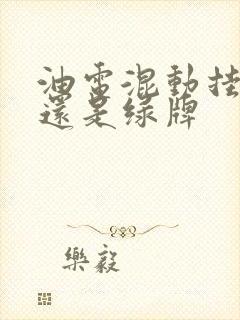 油電混動挂
還是綠牌
樂毅